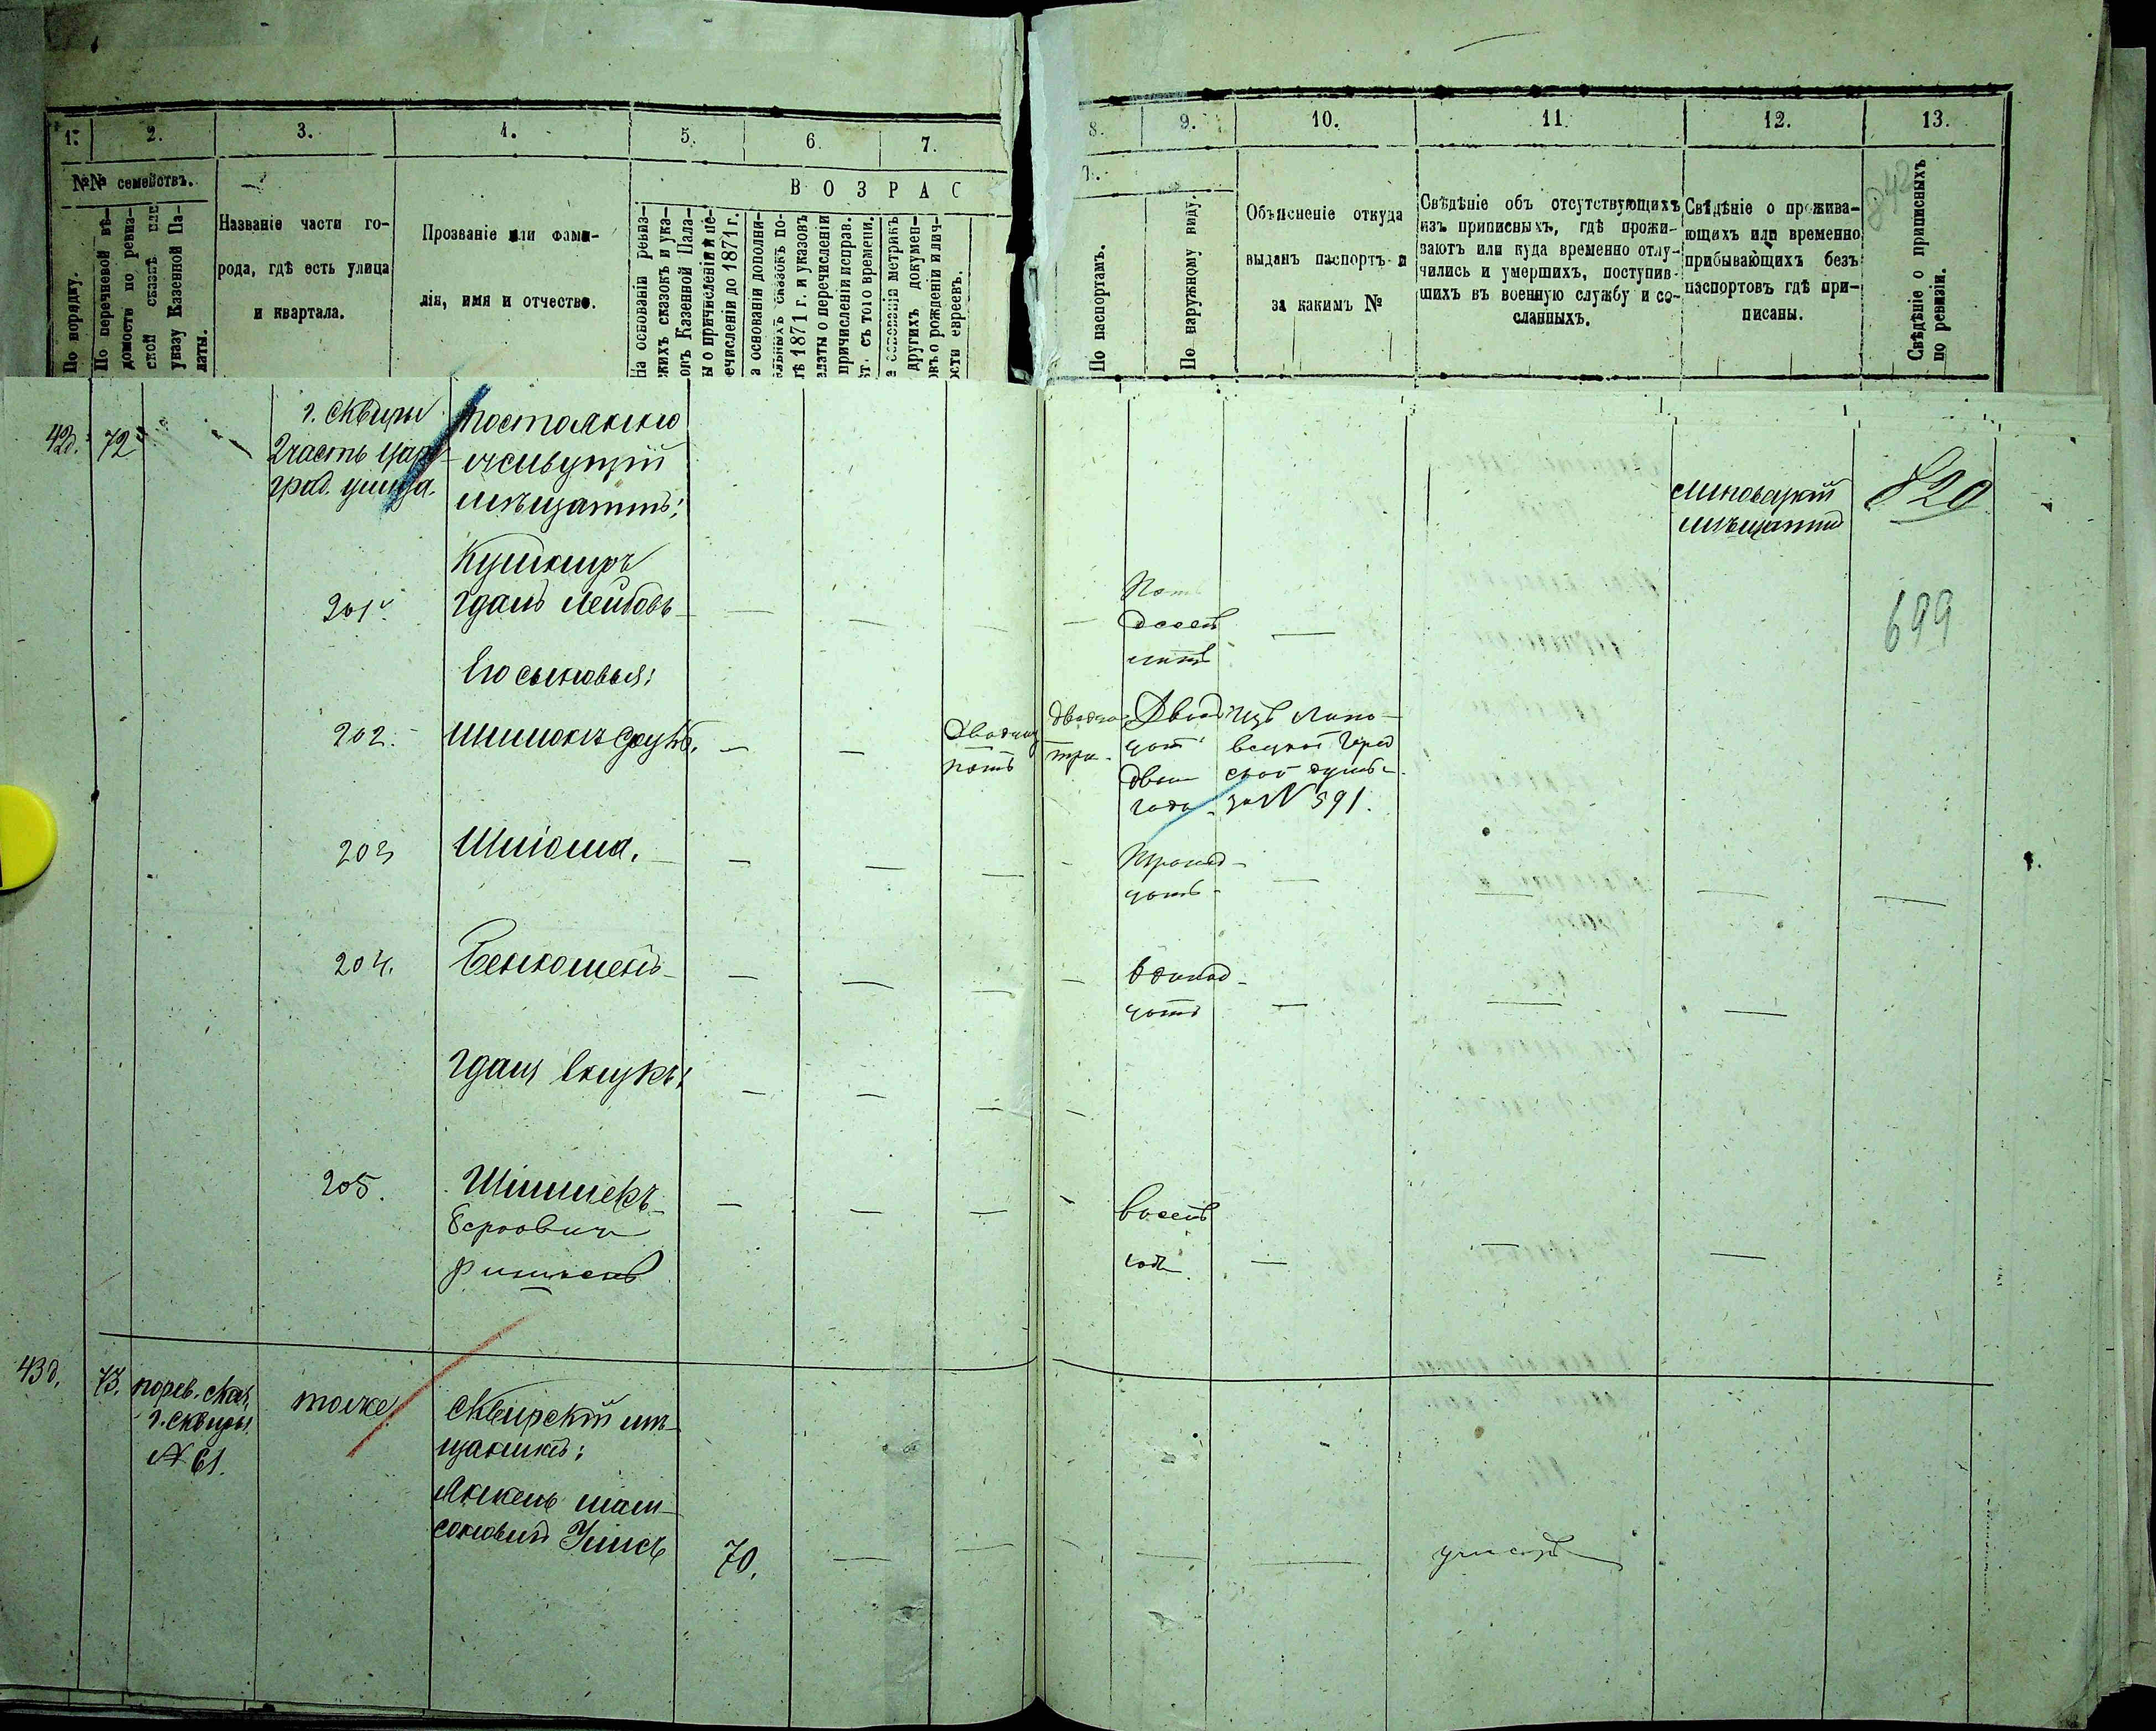 1. 2. 3. 4. 5. 6. 7. 8. 9. 10. 11. 12. 13.
№№ семействъ.
По порядку.
По перечневой вѣ-
домости по ревиз-
ской сказкѣ или
указу Казенной Па-
латы.
Названіе части го-
рода, гдѣ есть улица
и квартала.
Прозваніе или фами-
лія, имя и отчество.
ВОЗРАС
На основаніи ревиз-
скихъ сказокъ и ука-
зовъ Казенной Пала-
ты о причисленіи и пе-
речисленіи до 1871 г.
а основаніи дополни-
тельныхъ сказокъ по-
лѣ 1871 г. и указовъ
алаты о перечисленіи
причисленіи исправ.
ст. съ того времени.
а основаніи метрикъ
другихъ докумен-
овъ о рожденіи и лич-
ости евреевъ.
По паспортамъ.
По наружному виду.
Объясненіе откуда
выданъ паспортъ и
за какимъ №
Свѣдѣніе объ отсутствующихъ
изъ приписныхъ, гдѣ прожи-
ваютъ или куда временно отлу-
чились и умершихъ, поступив-
шихъ въ военную службу и со-
сланныхъ.
Свѣдѣніе о прожива-
ющихъ или временно
прибывающихъ безъ
паспортовъ гдѣ при-
писаны.
Свѣдѣніе о приписныхъ
по ревизіи.
42д. 72
г. Сквиры
2 часть Цар-
град. улица.
постоянно
живущій
мѣщанинъ:
Липовецкій
мѣщанинъ
820
Кушниръ
201. Идаль Лейбовъ
Пять
десять
пять
699
Его сыновья:
202. Шимонъ Сруль.
Двадцать
пять
Двадца
три.
Двад
цать
два
года
Изъ Липо-
вецкой Город
ской думы
за № 591.
203 Шлiома.
Тринад-
цать
204. Бенюменъ
Одинад-
цать
Идаля внукъ:
205. Шимшекъ
Берковичъ
восемь
лѣтъ
43д. 73. по рев. сказ.
г. Сквиры
№ 61.
тоже
Сквирскій мѣ-
щанинъ:
Янкель Шам-
соновичъ
70.
умеръ